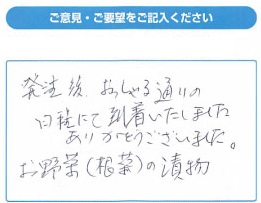 ご意見・ご要望をご記入ください
発注後、おっしゃる通りの
日程にて到着いたしました
ありがとうございました。
お野菜(根菜)の漬物